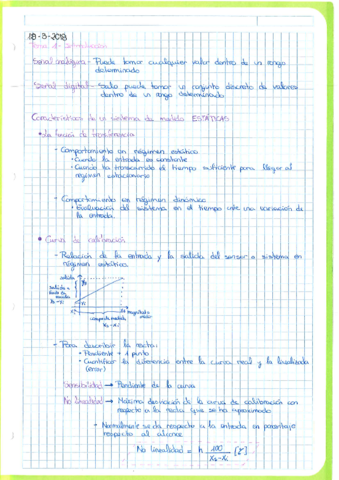 08-3-2018
Tema 1- Introducción
Señal analógica - Puede tomar cualquier valor dentro de un rango
determinado
Señal digital - Sólo puede tomar un conjunto discreto de valores
dentro de un rango determinado
Características de un sistema de medida ESTÁTICAS
• La función de transferencia
- Comportamiento en régimen estático
• Cuando la entrada es constante
• Cuando ha transcurrido el tiempo suficiente para llegar al
régimen estacionario
- Comportamiento en régimen dinámico
• Evaluación del sistema en el tiempo ante una variación de
la entrada.
• Curva de calibración
- Relación de la entrada y la salida del sensor o sistema en
régimen estático.
salida
magnitud a
medir
campo de medida
- Para describir la recta:
• Pendiente + 1 punto
• Cuantificar la diferencia entre la curva real y la linealizada
(error)
Sensibilidad → Pendiente de la curva
No linealidad → Máxima desviación de la curva de calibración con
respecto a la recta que se ha aproximado
• Normalmente se da respecto a la entrada en porcentaje
respecto al alcance
No linealidad = h 100 / Xs-Xi [%]